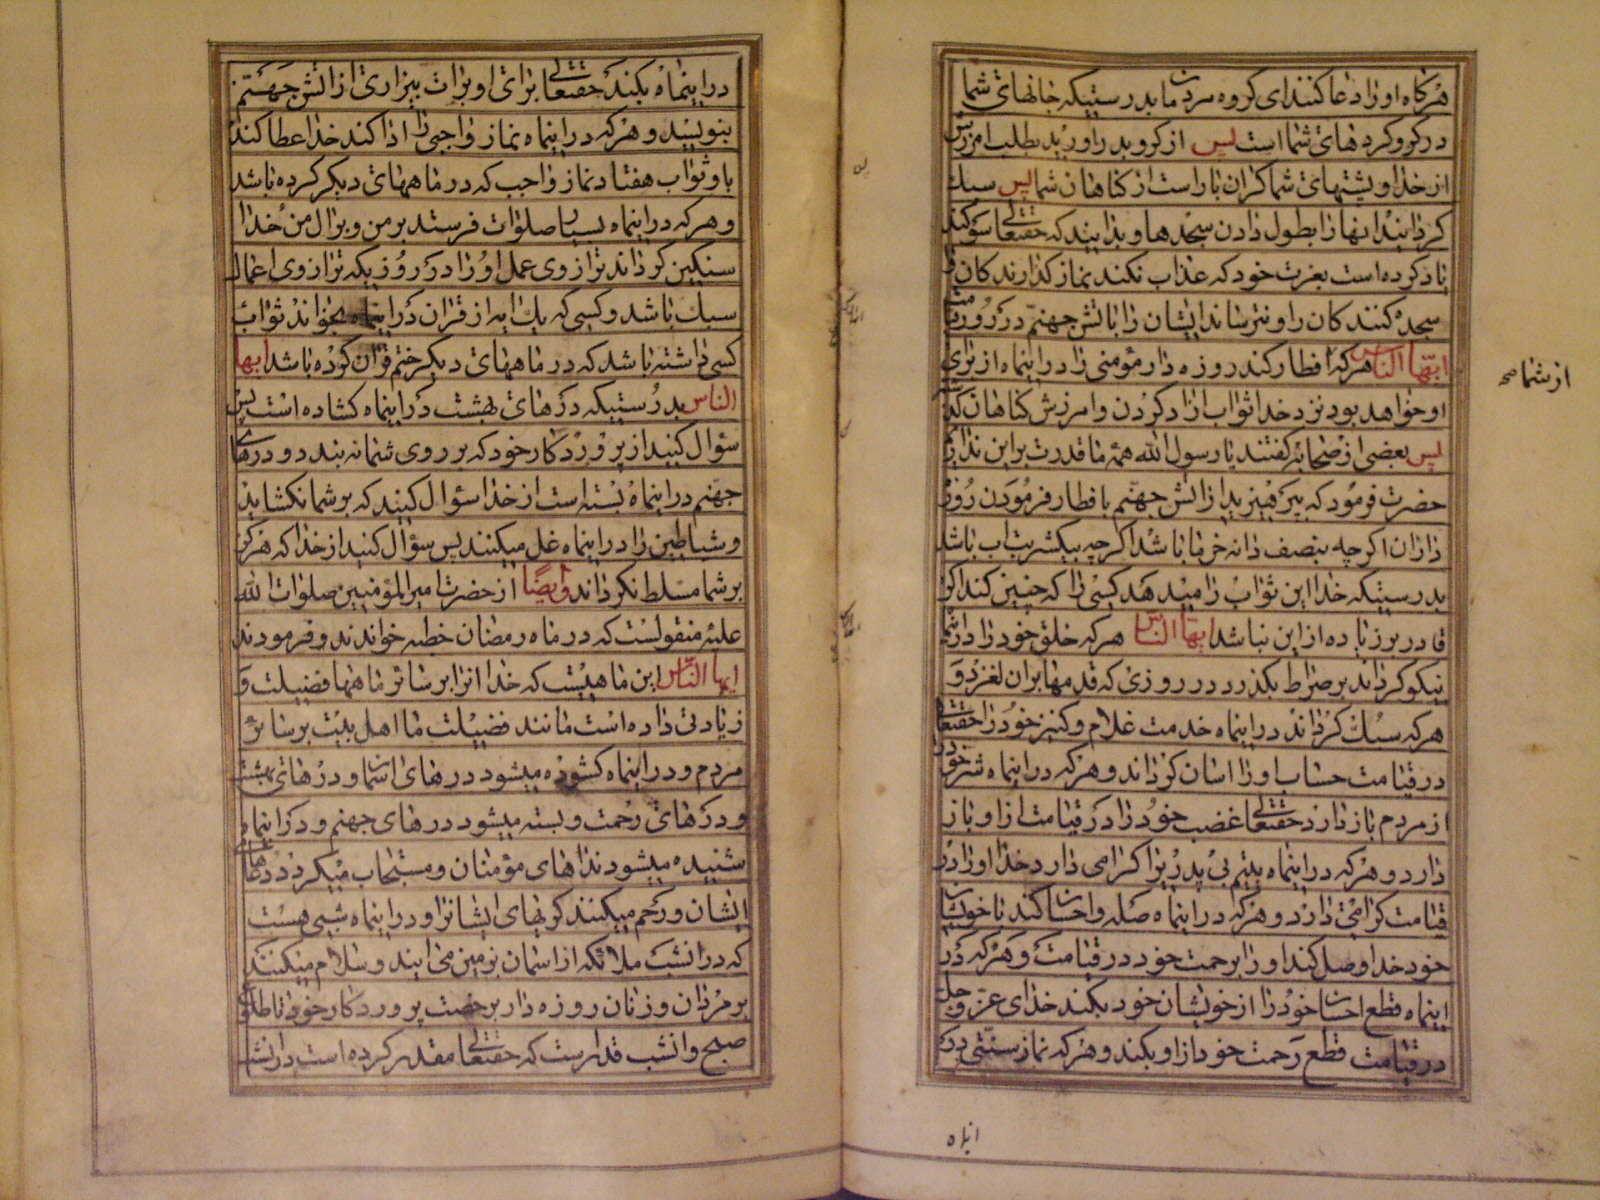 هرگاه او را دعا کنند ای گروه مردمان بدرستیکه جانهای شما
در گرو کردهای شما است پس از گرو بدر اورید بطلب امرزش
از خدا و پشتهای شما گران بار است از گناهان شما پس سبک
گردانید انها را بطول دادن سجدها و بدانید که حقتعالی سوگند
یاد کرده است بعزت خود که عذاب نکند نماز گذارندگان و
سجده کنندگان را و نترساند ایشان را باتش جهنم در روز قیامت
ایها الناس هرکه افطار کند روزه دار مؤمنی را در اینماه از برای
او خواهد بود نزد خدا ثواب ازاد کردن و امرزش گناهان گذشته
پس بعضی از صحابه گفتند یا رسول الله همه ما قدرت بر این نداریم
حضرت فرمود که بپرهیزید از اتش جهنم بافطار فرمودن روزه
داران اگرچه بنصف دانه خرما باشد اگرچه بیکشربت اب باشد
بدرستیکه خدا این ثواب را میدهد کسی را که چنین کند اگر
قادر بر زیاده از این نباشد ایها الناس هرکه خلق خود را در اینماه
نیکو گرداند بر صراط بگذرد در روزی که قدمها بران لغزد و
هرکه سبک گرداند در اینماه خدمت غلام و کنیز خود را حقتعالی
در قیامت حساب او را اسان گرداند و هرکه در اینماه شر خود
از مردم باز دارد حقتعالی غضب خود را در قیامت از او باز
دارد و هرکه در اینماه یتیم بی پدریرا گرامی دارد خدا او را در
قیامت گرامی دارد و هرکه در اینماه صله و احسان کند با خویشان
خود خدا وصل کند او را برحمت خود در قیامت و هرکه در
اینماه قطع احسان خود را از خویشان خود بکند خدای عز و جل
در قیامت قطع رحمت خود از او بکند و هرکه نماز سنتی در
از شما صح
اینماه
در اینماه بکند حقتعالی برای او برات بیزاری از اتش جهنم
بنویسد و هرکه در اینماه نماز واجبی را ادا کند خدا عطا کند
باو ثواب هفتاد نماز واجب که در ماههای دیگر کرده باشد
و هرکه در اینماه بسیار صلوات فرستد بر من و بر ال من خدا
سنگین گرداند ترازوی عمل او را در روزیکه ترازوی اعمال
سبک باشد و کسی که یک ایه از قران در اینماه بخواند ثواب
کسی داشته باشد که در ماههای دیگر ختم قران کرده باشد ایها
الناس بدرستیکه درهای بهشت در اینماه گشاده است پس
سؤال کنید از پروردگار خود که بر روی شما نه بندد و درهای
جهنم در اینماه بسته است از خدا سؤال کنید که بر شما نگشاید
و شیاطین را در اینماه غل میکنند پس سؤال کنید از خدا که هرگز
بر شما مسلط نگرداند و ایضا از حضرت امیرالمؤمنین صلوات الله
علیه منقولست که در ماه رمضان خطبه خواندند و فرمودند
ایها الناس این ماهیست که خدا انرا بر سائر ماهها فضیلت و
زیادتی داده است مانند فضیلت ما اهل بیت بر سائر
مردم و در اینماه گشوده میشود درهای اسمان و درهای بهشت
و درهای رحمت و بسته میشود درهای جهنم و در اینماه
شنیده میشود نداهای مؤمنان و مستجاب میگردد دعای
ایشان و رحم میکنند گریهای ایشانرا و در اینماه شبی هست
که در انشب ملائکه از اسمان بزمین می ایند و سلام میکنند
بر مردان و زنان روزه دار برخصت پروردگار خود تا طلوع
صبح و انشب قدر است که حقتعالی مقدر کرده است در انشب